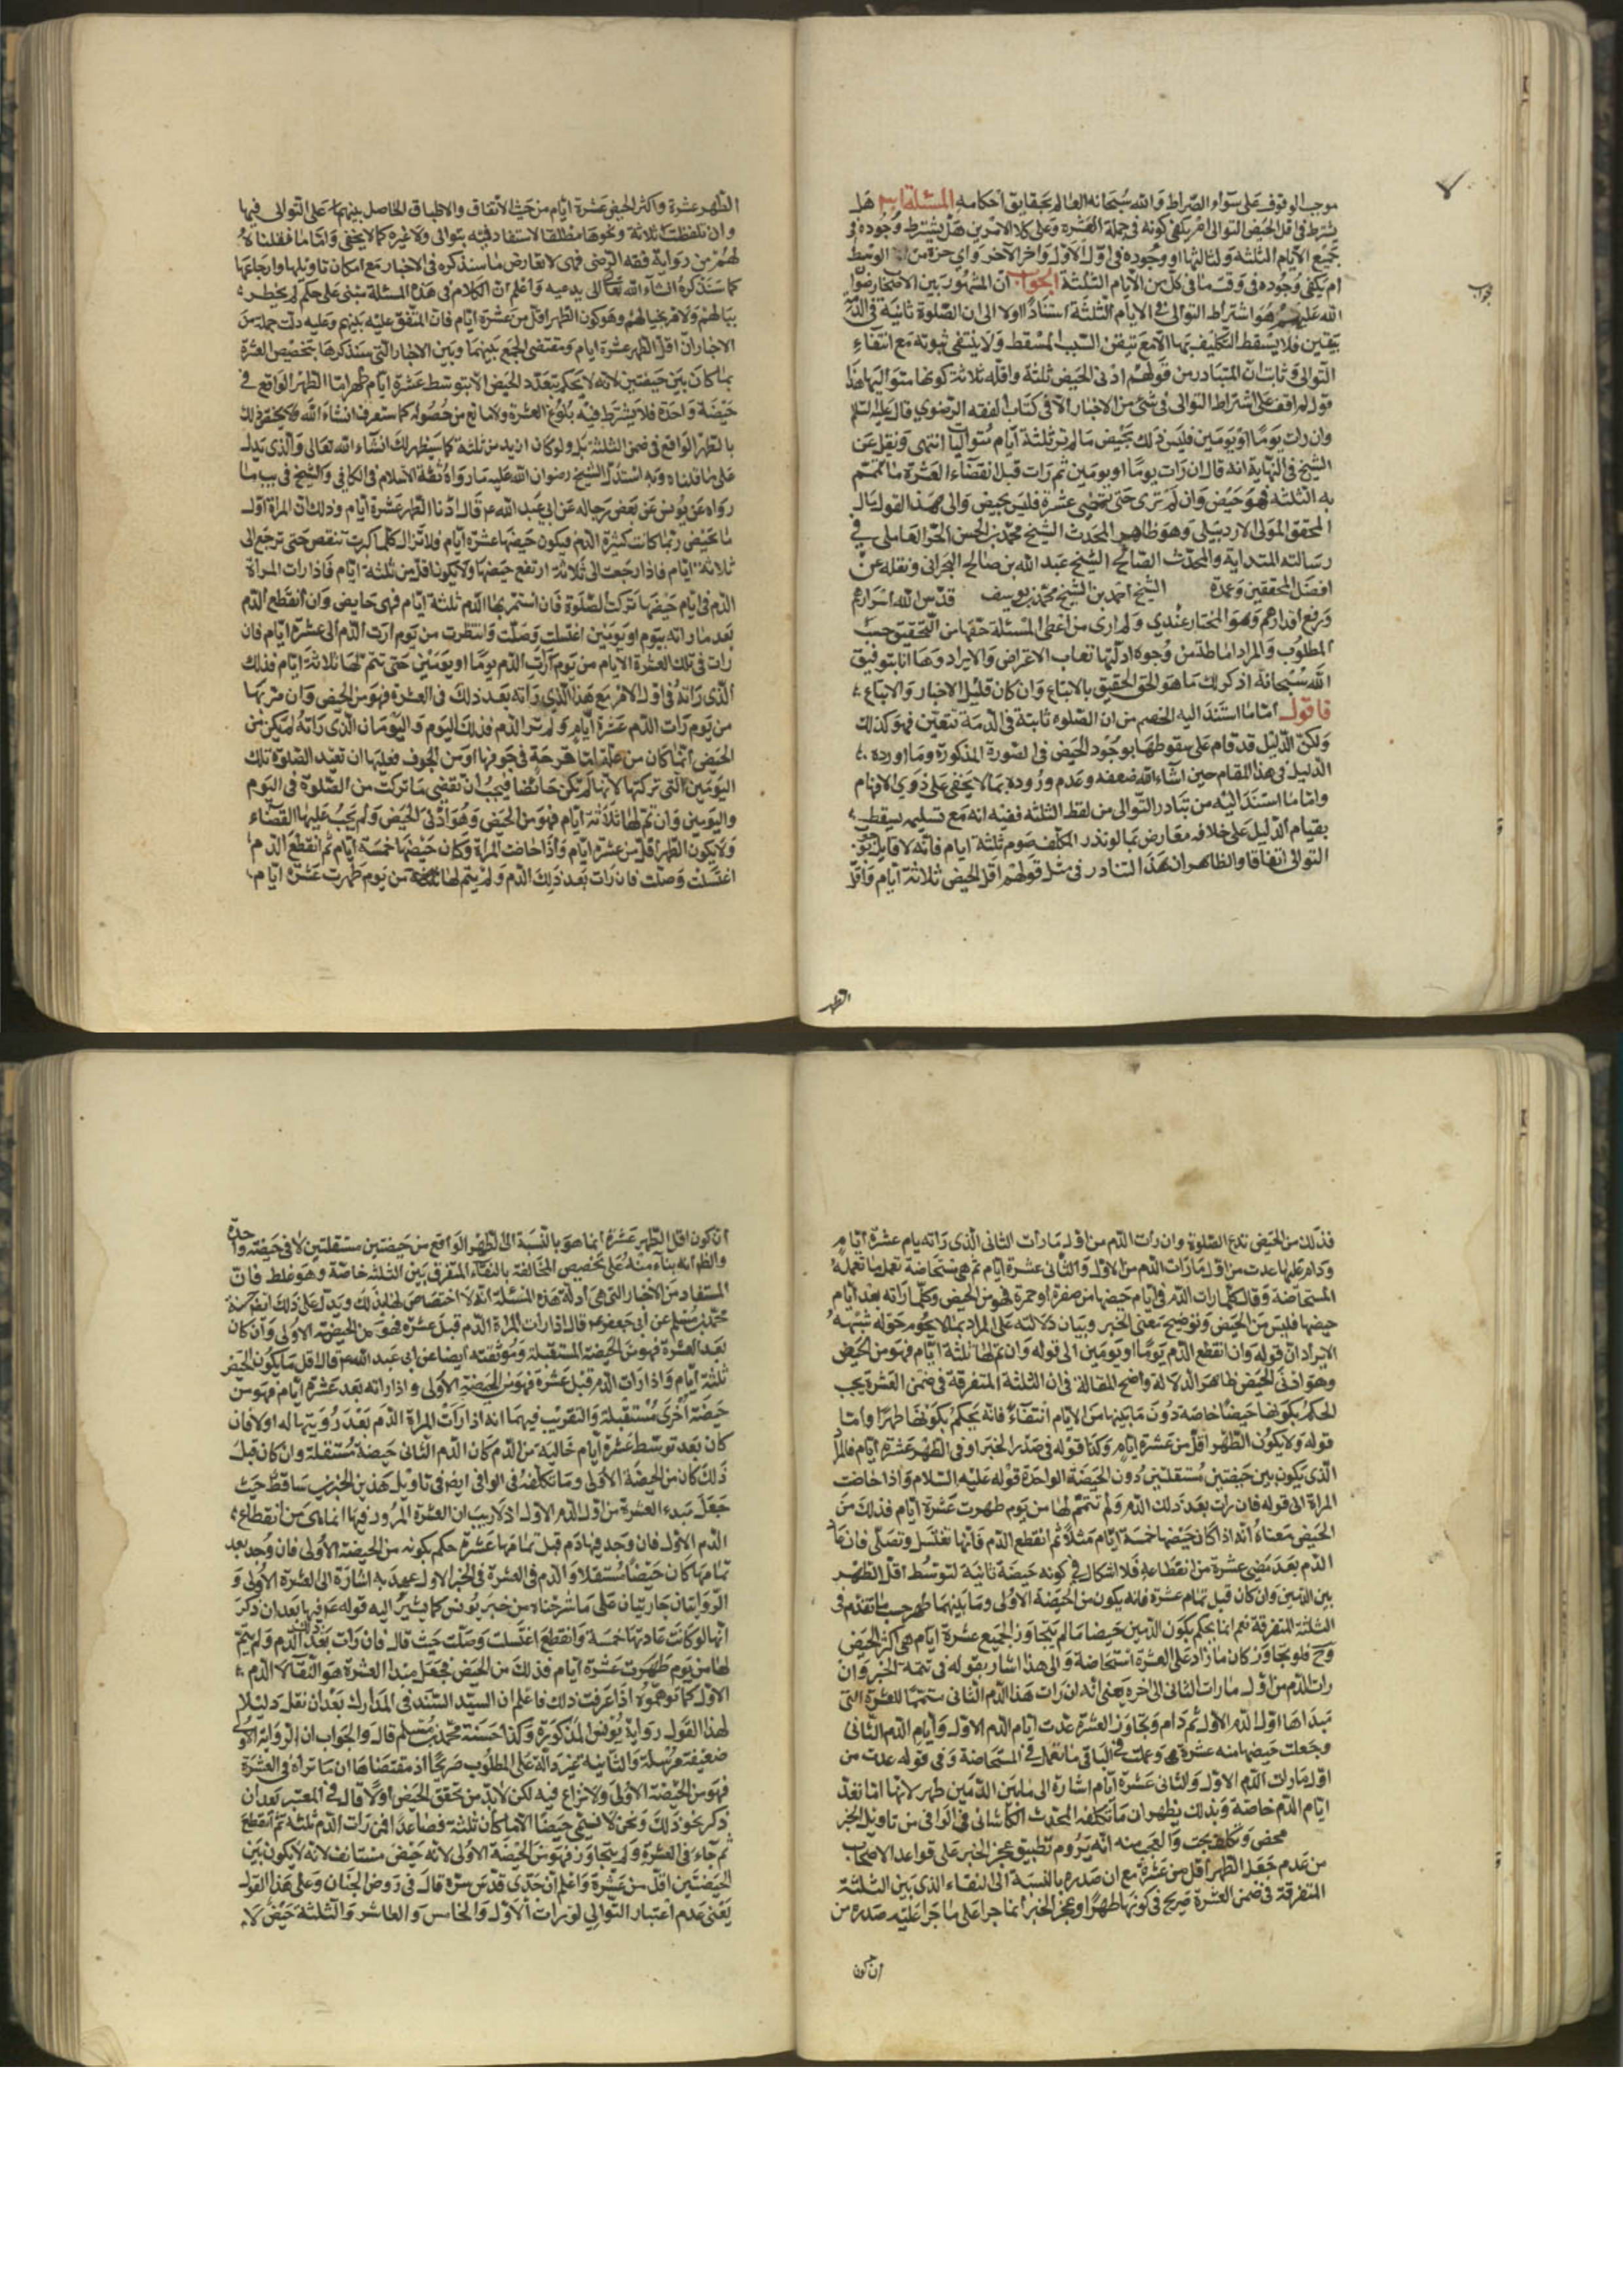 موجب الوقوف على سواء الصراط والله سبحانه العالم بحقايق احكامه المسئلة هل
يشترط فى اقل الحيض التوالى ام يكفى كونه فى جملة العشرة وعلى كلا الامرين هل يشترط وجوده فى
جميع الايام الثلثة ولياليها او وجوده فى اول الاول واخر الآخر واى جزء من الوسط
ام يكفى وجوده فى وقت ما فى كل من الايام الثلثة الجواب ان المشهور بين الاصحاب رضوان
الله عليهم هو اشتراط التوالى فى الايام الثلثة استنادا اولا الى ان الصلوة ثابتة فى الذمة
بيقين فلا يسقط التكليف بها الا مع تيقن السبب المسقط ولا يتقن ثبوته مع انتفاء
التوالى وثانيا ان المتبادر من قولهم ادنى الحيض ثلثة واقله ثلاثة كونها متوالية هذا
ولم اقف على اشتراط التوالى فى شئ من الاخبار الا فى كتاب الفقه الرضوي قال عليه السلم
وان رات يوما او يومين فليس ذلك بحيض ما لم تر ثلثة ايام متواليا انتهى ونقل عن
الشيخ فى النهاية انه قال ان رات يوما او يومين ثم رات قبل انقضاء العشرة ما تتم
به الثلثة فهو حيض وان لم ترى حتى تمضى عشرة فليس بحيض والى هذا القول مال
المحقق المولى الاردبيلى وهو ظاهر المحدث الشيخ محمد بن الحسن الحر العاملى فى
رسالته البداية والمحدث الصالح الشيخ عبد الله بن صالح البحرانى ونقله عن
افضل المحققين وعمدة الشيخ احمد بن الشيخ محمد بن يوسف قدس الله اسرارهم
ورفع اقدارهم وهو المختار عندي ولم ارى من اعطى المسئلة حقها من التحقيق حسب
المطلوب والمراد اماطة من وجوه ادلتها نقاب الاعتراض والايراد وها انا بتوفيق
الله سبحانه اذكر لك ما هو الحق الحقيق بالاتباع وان كان قليل الاخبار والاتباع
فاقول اما ما استند اليه الخصم من ان الصلوة ثابتة فى الذمة بيقين فهو كذلك
ولكن الدليل قد قام على سقوطها بوجود الحيض فى الصورة المذكورة وما اورده
الدليل فى هذا المقام حين انشاء الله ضعفه وعدم وروده بما لا يخفى على ذوي الافهام
واما ما استند اليه من تبادر التوالى من لفظ الثلثة ففيه انه مع تسليمه يسقط
بقيام الدليل على خلافه معارض بما لو نذر المكلف صوم ثلثة ايام فانه لا قايل بوجوب
التوالى اتفاقا والظاهر ان هذا التبادر فى مثل قولهم اقل الحيض ثلاثة ايام واقل
الطهر
الطهر عشرة واكثر الحيض عشرة ايام من حيث الاتفاق والاطباق الحاصل بينهم على التوالى فيها
وان تلفظت ثلاثة ونحوها مطلقا لا ستفاد فيه توالى ولا غيره كما لا يخفى واما ما نقلنا
لهم من رواية فقه الرضى فهى لا تعارض ما سنذكره فى الاخبار مع امكان تاويلها وارجاعها
كما سنذكره انشاء الله تعالى اليه واعلم ان الكلام فى هذه المسئلة مبنى على حكم لم يخطر
ببالهم ولا مر بخيالهم وهو كون الطهر اقل من عشرة ايام فان المتفق عليه بينهم وعليه دلت جملة من
الاخبار ان اقل الطهر عشرة ايام ومقتضى الجمع بينهما وبين الاخبار التى سنذكرها تخصيص العشرة
بما كان بين حيضتين لانه لا يحكم بتعدد الحيض الا بتوسط عشرة ايام طهر اما الطهر الواقع فى
حيضة واحدة فلا يشترط فيه بلوغ العشرة ولا مانع من حصوله كما ستعرف انشاء الله ذلك
بالطهر الواقع فى ضمن الثلثة بل ولو كان ازيد من ثلثة كما سيظهر لك انشاء الله تعالى والذى يدل
على ما قلناه وبه استدل الشيخ رضوان الله عليه ما رواه ثقة الاسلام فى الكافى والشيخ فى يب بما
رواه عن يونس عن بعض رجاله عن ابى عبد الله ع قال ادنا الطهر عشرة ايام وذلك ان المراة اول
ما تحيض ربما كانت كثيرة الدم فيكون حيضها عشرة ايام فلا تزال كلما كبرت تنقص حتى ترجع الى
ثلاثة ايام فاذا رجعت الى ثلاثة ارتفع حيضها ولا يكون اقل من ثلثة ايام فاذا رات المراة
الدم فى ايام حيضها تركت الصلوة فان استمر بها الدم ثلثة ايام فهى حايض وان انقطع الدم
بعد ما راته يوم او يومين اغتسلت وصلت وانتظرت من يوم ارت الدم الى عشرة ايام فان
رات فى تلك العشرة الايام من يوم رات الدم يوما او يومين حتى تتم لها ثلاثة ايام فذلك
الذى راته فى اول الامر مع هذا الذى راته بعد ذلك فى العشرة فهو من الحيض وان مر بها
من يوم رات الدم عشرة ايام ولم تر الدم فذلك اليوم واليومان الذى راته لم يكن من
الحيض انما كان من علة اما قرحة فى جوفها او من الجوف فعليها ان تعيد الصلوة تلك
اليومين التى تركتها لانها لم تكن حائضا فيجب ان تقضى ما تركت من الصلوة فى اليوم
واليومين وان تم لها ثلاثة ايام فهو من الحيض وهو ادنى الحيض ولم يجب عليها القضاء
ولا يكون الطهر اقل من عشرة ايام واذا حاضت المراة وكان حيضها خمسة ايام ثم انقطع الدم
اغتسلت وصلت فان رات بعد ذلك الدم ولم يتم لها من يوم طهرت عشرة ايام
فذلك من الحيض تدع الصلوة وان رات الدم من اول ما رات الثانى الذى راته تمام عشرة ايام
ودام عليها عدت من اول ما رات الدم من الاول والثانى عشرة ايام ثم هى مستحاضة تعمل ما تعمله
المستحاضة وقال كلما رات الدم فى ايام حيضها من صفرة او حمرة فهو من الحيض وكلما راته بعد ايام
حيضها فليس من الحيض وتوضيح معنى الخبر وبيان دلالته على المراد بما لا يحوم حوله شبهة
الايراد ان قوله وان انقطع الدم يوما او يومين الى قوله وان تم لها ثلثة ايام فهو من الحيض
وهو ادنى الحيض ظاهر الدلالة واضح المقالة فى ان الثلثة المتفرقة فى ضمن العشرة يجب
الحكم بكونها حيضا خاصة دون ما بينها من الايام فانه يحكم بكونها طهرا واما
قوله ولا يكون الطهر اقل من عشرة ايام وكذا قوله فى صدر الخبر ادنى الطهر عشرة ايام فالمراد
الذى يكون بين حيضتين مستقلتين دون الحيضة الواحدة قوله عليه السلام واذا حاضت
المراة الى قوله فان رات بعد ذلك الدم ولم تتم لها من يوم طهرت عشرة ايام فذلك من
الحيض معناه انه اذا كان حيضها خمسة ايام مثلا ثم انقطع الدم فانها تغتسل وتصلى فان
الدم بعد مضى عشرة من انقطاعه فلا اشكال فى كونه حيضة ثانية لتوسط اقل الطهر
بين الدمين وان كان قبل تمام عشرة فانه يكون من الحيضة الاولى وما بينهما طهر حسب ما تقدم فى
الثلثة المتفرقة نعم انما يحكم بكون الدمين حيضا ما لم يتجاوز الجميع عشرة ايام هى اكثر الحيض
وح فلو تجاوز كان ما زاد على العشرة استحاضة والى هذا اشار بقوله فى تتمة الخبر وان
رات الدم من اول ما رات الثانى الى اخره يعنى انه ان رات هذا الدم الثانى متمما للعشرة التى
مبداها اول الدم الاول ثم دام وتجاوز العشرة عدت ايام الدم الاول وايام الدم الثانى
وجعلت حيضها منه عشرة وعملت فى الباقى ما تعمله المستحاضة وفى قوله عدت من
اول ما رات الدم الاول والثانى عشرة ايام اشارة الى ما بين الدمين طهر لانها انما تعد
ايام الدم خاصة وبذلك يظهر ان ما تكلفه المحدث الكاشانى فى الوافى من تاويل الخبر
محض وتكلف بحت والعجب منه انه يروم تطبيق عجز الخبر على قواعد الاصحاب
من عدم جعل الطهر اقل من عشرة مع ان صدره بالنسبة الى النقاء الذى بين الثلثة
المتفرقة فى ضمن العشرة صريح فى كونها طهرا وعجز الخبر انما جرا على ما جرا عليه صدره من
ان كون
ان كون اقل الطهر عشرة انما هو بالنسبة الى الطهر الواقع من حيضتين مستقلتين لا فى حيضة واحدة
والظ انه بناء منه على تخصيص المخالفة بالنقاء المتفرق بين الثلثة خاصة وهو غلط فان
المستفاد من الاخبار التى هى ادلة هذه المسئلة انه لا اختصاص لها بذلك ويدل على ذلك ايضا حسنة
محمد بن مسلم عن ابى جعفر ع قال اذا رات المراة الدم قبل عشرة فهو من الحيضة الاولى وان كان
بعد العشرة فهو من الحيضة المستقبلة وموثقته ايضا عن ابى عبد الله ع قال اقل ما يكون الحيض
ثلثة ايام واذا رات الدم قبل عشرة فهو من الحيضة الاولى واذا راته بعد عشرة ايام فهو من
حيضة اخرى مستقبلة والتقريب فيهما انه اذا رات المراة الدم بعد رؤيتها له اولا فان
كان بعد توسط عشرة ايام خالية من الدم كان الدم الثانى حيضة مستقلة وان كان قبل
ذلك كان من الحيضة الاولى وما تكلفه فى الوافى ايضا فى تاويل هذين الخبرين ساقط حيث
جعل مبدء العشرة من اول الدم الاول اذ لا ريب ان العشرة المردد فيها انما هى من انقطاع
الدم الاول فان وجد فيها دم قبل تمامها عشرة حكم بكونه من الحيضة الاولى فان وجد بعد
تمامها كان حيضا مستقلا والدم فى العشرة فى الخبر الاول عهدية اشارة الى العشرة الاولى و
الروايتان جاريتان على ما شرحناه من خبر يونس كما يشير اليه قوله ع فيها بعد ان ذكر
انها لو كانت عادتها خمسة وانقطع اغتسلت وصلت حيث قال فان رات بعد ذلك الدم ولم يتم
لها من يوم طهرت عشرة ايام فذلك من الحيض فجعل مبدا العشرة هو النقاء لا الدم
الاول كما توهموه اذا عرفت ذلك فاعلم ان السيد السند فى المدارك بعد ان نقل دليلا
لهذا القول رواية يونس المذكورة وكذا حسنة محمد بن مسلم قال والجواب ان الرواية الاولى
ضعيفة مرسلة والثانية غير دالة على المطلوب صريحا اذ مقتضاها ان ما تراه فى العشرة
فهو من الحيضة الاولى ولا نزاع فيه لكن لابد من تحقق الحيض اولا قال فى المعتبر بعد ان
ذكر نحو ذلك ونحن لا نسمى حيضا الا ما كان ثلثة فصاعدا فمن رات الدم ثلثة ثم انقطع
ثم جاء فى العشرة ولم يتجاوز فهو من الحيضة الاولى لانه حيض مستانف لانه لا يكون بين
الحيضتين اقل من عشرة واعلم ان جدى قدس سره قال فى روض الجنان وعلى هذا القول
يعنى عدم اعتبار التوالى لو رات الاول والخامس والعاشر والثلثة حيض لا